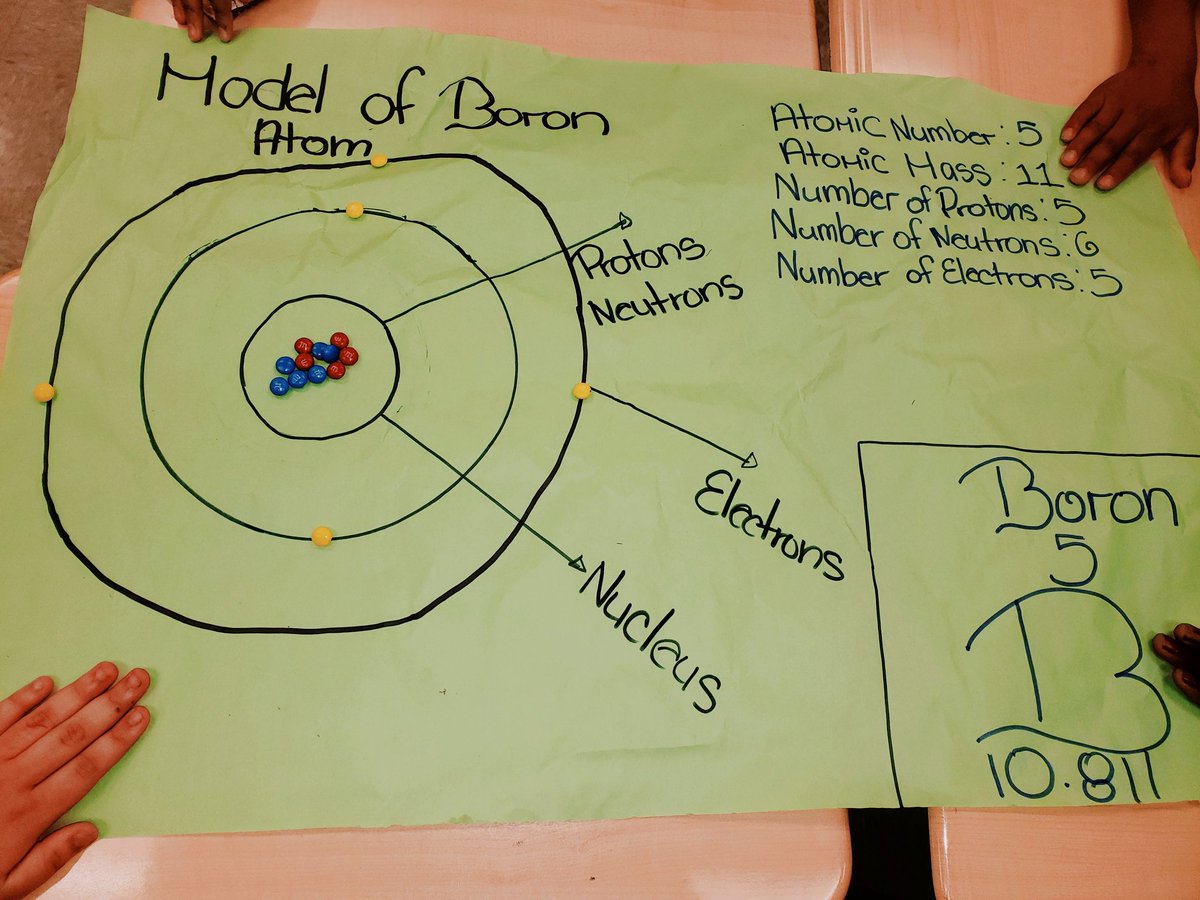 Model of Boron
Atom
Atomic Number: 5
Atomic Mass: 11
Number of Protons: 5
Number of Neutrons: 6
Number of Electrons: 5
Protons
Neutrons
Electrons
Nucleus
Boron
5
B
10.811